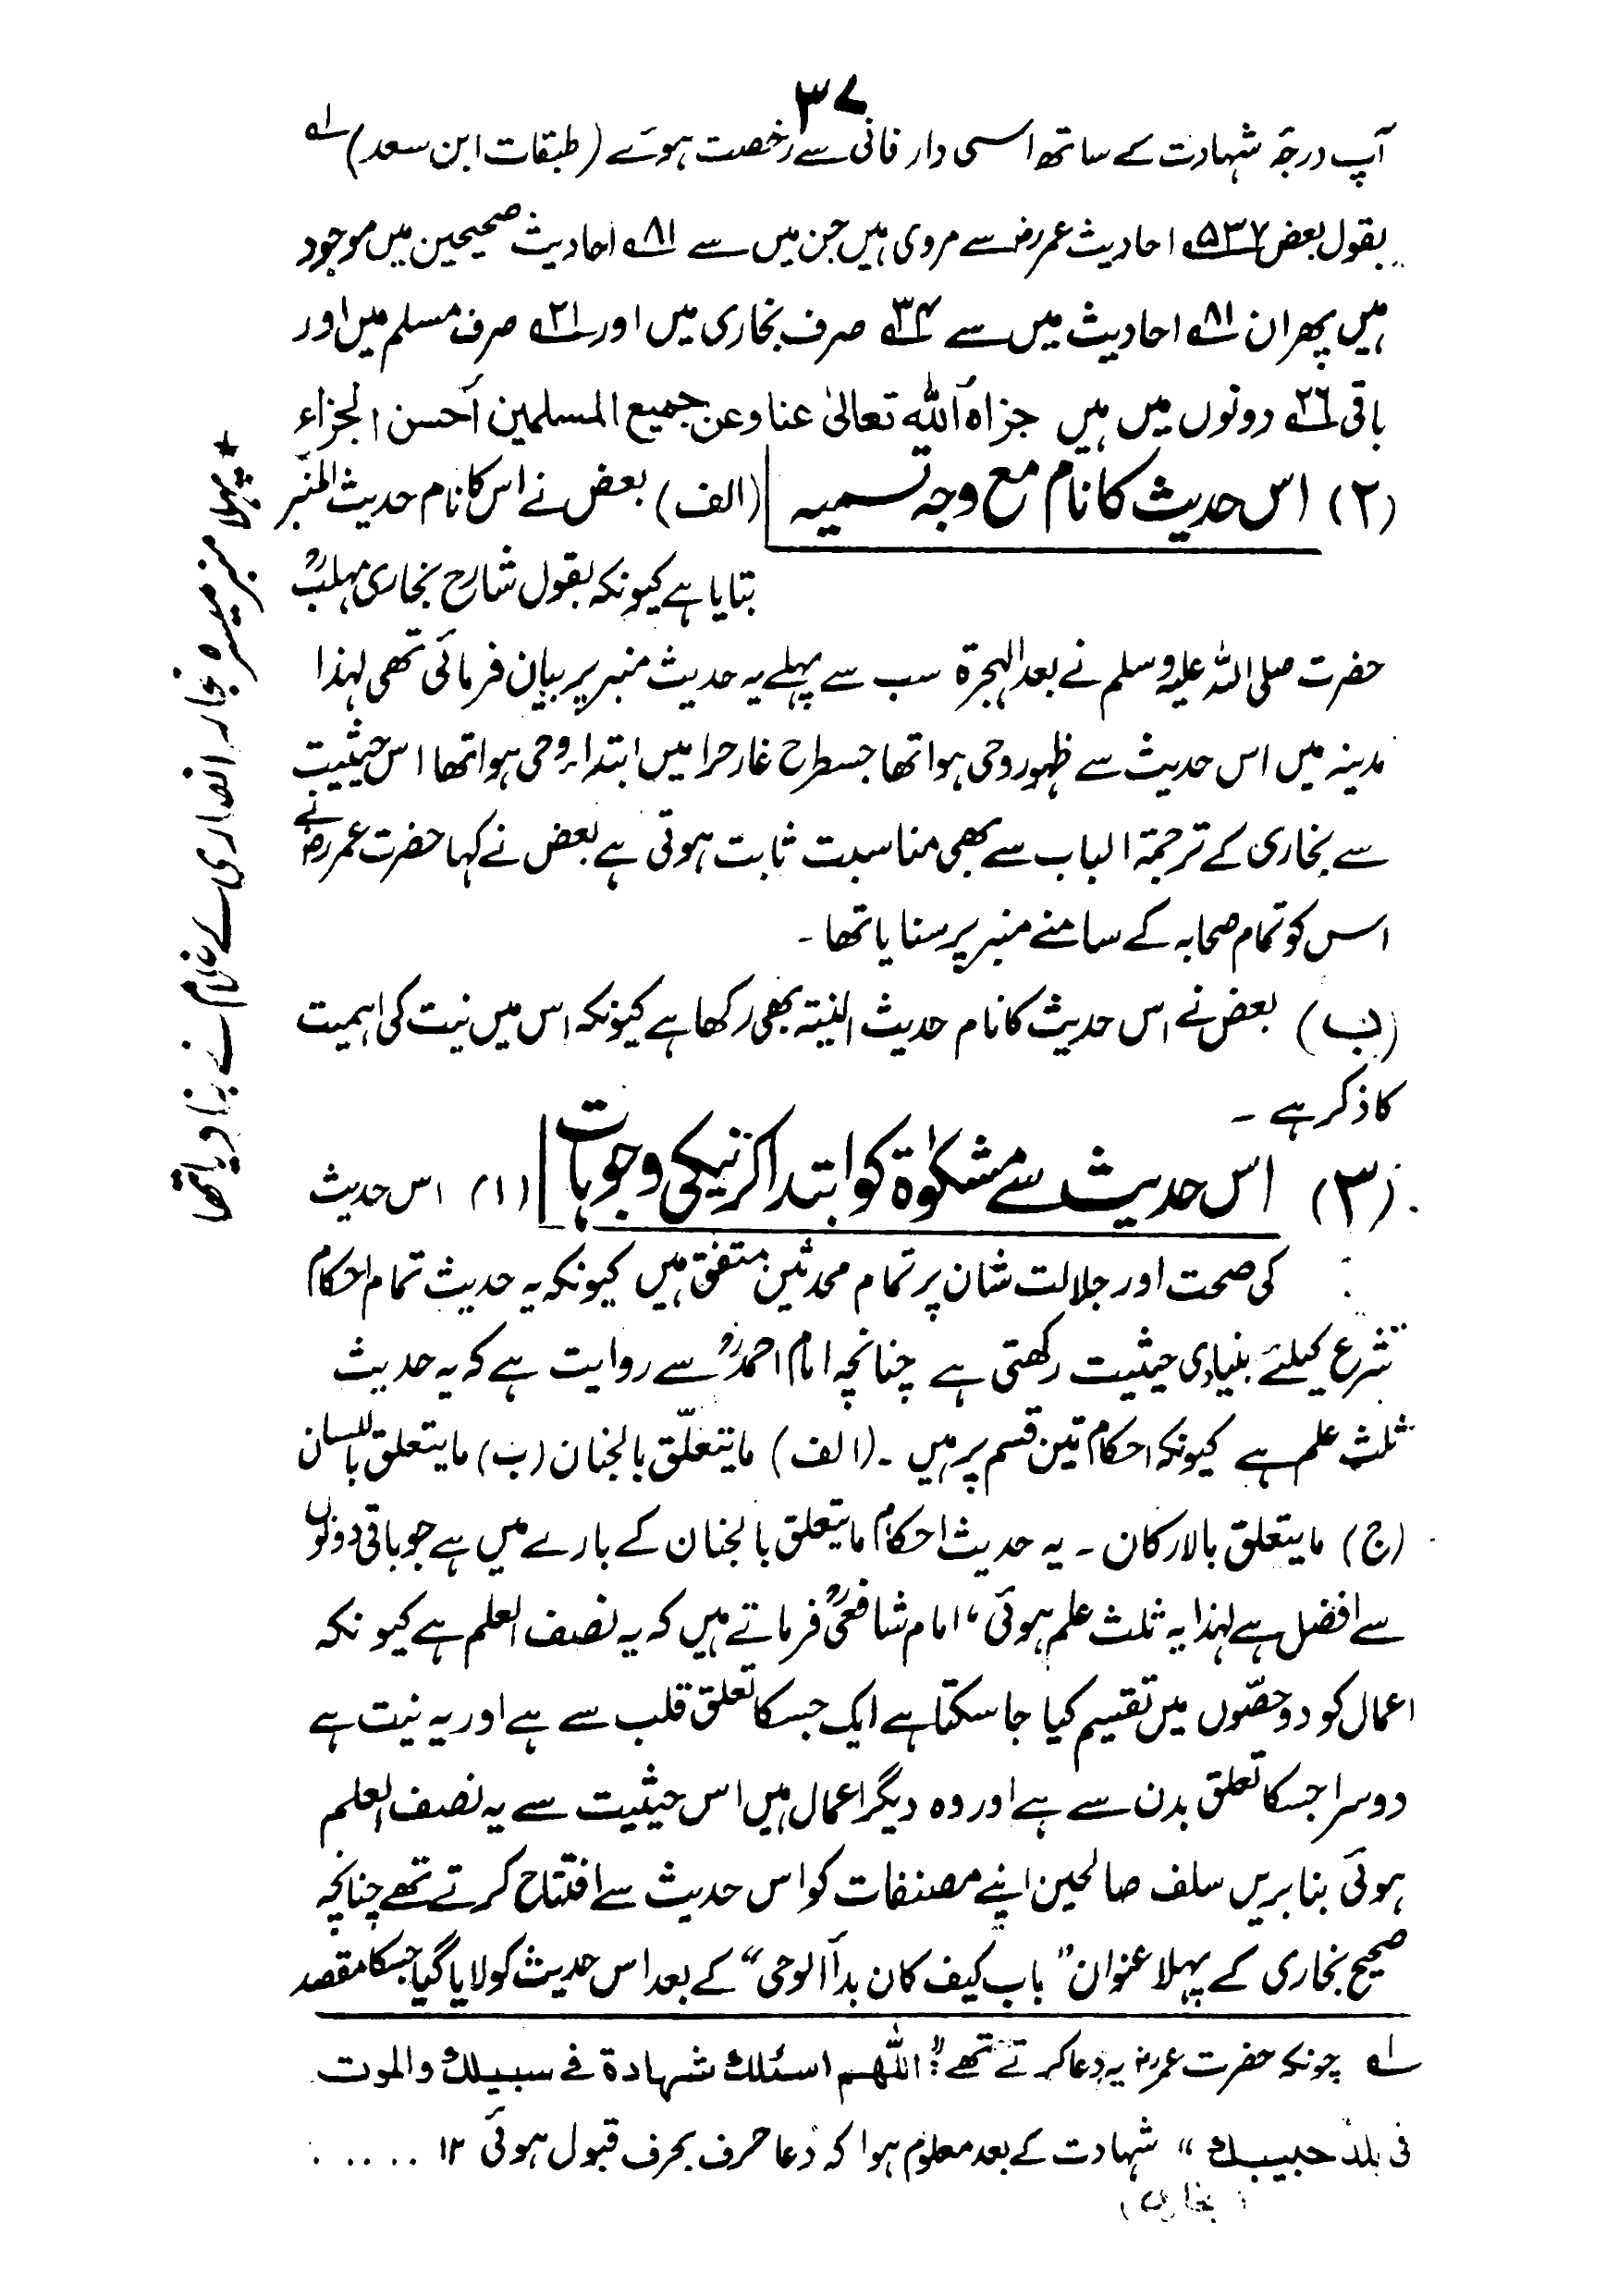 ۳۷
آپ درجۂ شہادت کے ساتھ اسی دار فانی سے رخصت ہوئے (طبقات ابن سعد) لہ
بقول بعض ۵۳۷ احادیث عمر رض سے مروی ہیں جن میں سے ۸۱ احادیث صحیحین میں موجود
ہیں پھر ان ۸۱ احادیث میں سے ۳۴ صرف بخاری میں اور ۲۱ صرف مسلم میں اور
باقی ۲۶ دونوں میں ہیں جزاہ اللہ تعالیٰ عنا وعن جمیع المسلمین أحسن الجزاء
(۲) اس حدیث کا نام مع وجہ تسمیہ (الف) بعض نے اس کا نام حدیث المنبر
بتایا ہے کیونکہ بقول شارح بخاری مہلبؒ
حضرت صلی اللہ علیہ وسلم نے بعد الہجرۃ سب سے پہلے یہ حدیث منبر پر بیان فرمائی تھی لہذا
مدینہ میں اس حدیث سے ظہور وحی ہوا تھا جسطرح غار حرا میں ابتداء وحی ہوا تھا اس حیثیت
سے بخاری کے ترجمۃ الباب سے بھی مناسبت ثابت ہوتی ہے بعض نے کہا حضرت عمر رض نے
اس کو تمام صحابہ کے سامنے منبر پر سنایا تھا ۔
(ب) بعض نے اس حدیث کا نام حدیث النیتہ بھی رکھا ہے کیونکہ اس میں نیت کی اہمیت
کا ذکر ہے ۔
(۳) اس حدیث سے مشکوٰۃ کو ابتدا کرنیکی وجوہات (۱) اس حدیث
کی صحت اور جلالت شان پر تمام محدثین متفق ہیں کیونکہ یہ حدیث تمام احکام
شرع کیلئے بنیادی حیثیت رکھتی ہے چنانچہ امام احمدؒ سے روایت ہے کہ یہ حدیث
ثلث علم ہے کیونکہ احکام تین قسم پر ہیں ۔ (الف) ما یتعلّق بالجنان (ب) ما یتعلق باللسان
(ج) ما یتعلق بالارکان ۔ یہ حدیث احکام ما یتعلق بالجنان کے بارے میں ہے جو باقی دونوں
سے افضل ہے لہذا یہ ثلث علم ہوئی ، امام شافعیؒ فرماتے ہیں کہ یہ نصف العلم ہے کیونکہ
اعمال کو دو حصّوں میں تقسیم کیا جا سکتا ہے ایک جسکا تعلق قلب سے ہے اور یہ نیت ہے
دوسرا جسکا تعلق بدن سے ہے اور وہ دیگر اعمال ہیں اس حیثیت سے یہ نصف العلم
ہوئی بنا بریں سلف صالحین اپنے مصنفات کو اس حدیث سے افتتاح کرتے تھے چنانچہ
صحیح بخاری کے پہلا عنوان "باب کیف کان بدأ الوحی" کے بعد اس حدیث کو لایا گیا جسکا مقصد
لہ چونکہ حضرت عمر رض یہ دعا کرتے تھے : "اللّٰھم اسئلك شہادۃ فے سبیلك والموت
فی بلد حبیبك" شہادت کے بعد معلوم ہوا کہ دعا حرف بحرف قبول ہوئی ۱۲ . . . . .
(بخاری)
★ پہلا منبر میسرہ نجار انصاری کے غلام نے بنا دیا تھا